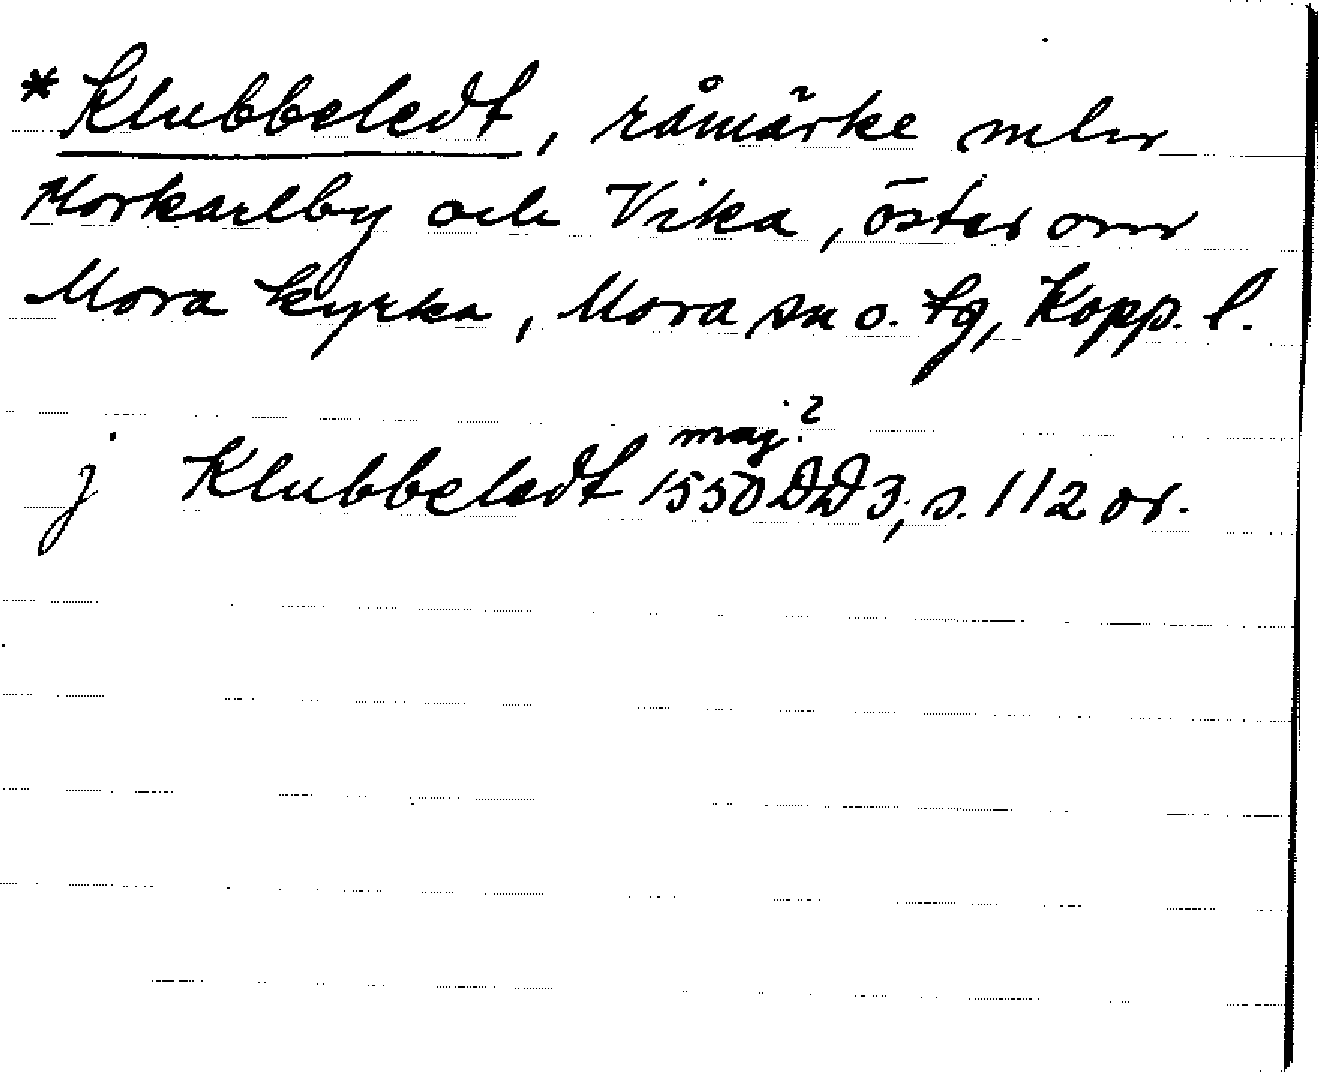 *Klubbeledt, råmärke mlm
Morkarlby och Vika, öster om
Mora kyrka, Mora sn o. tg, Kopp. l.
maj?
j Klubbeledt 1550 DD 3, s. 112 or.